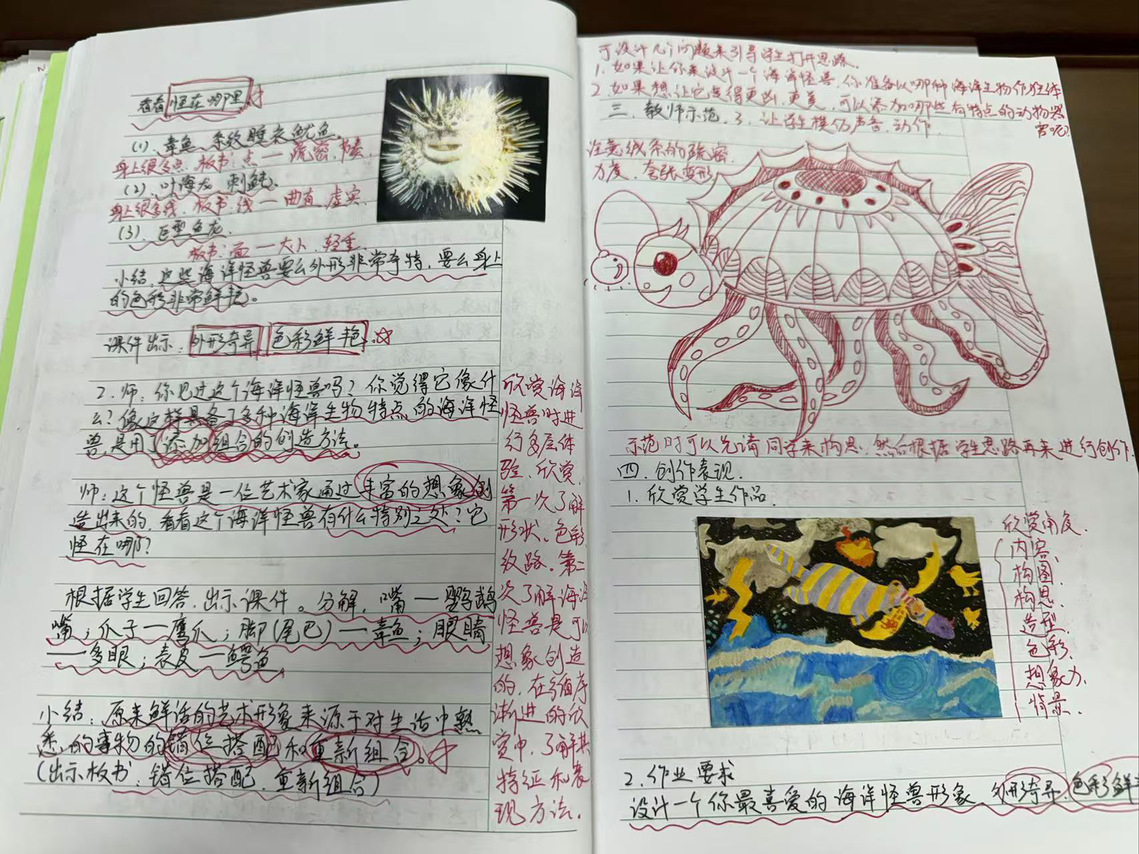 看看怪在哪里
(1)、章鱼、条纹睡衣鱿鱼。
身上很多点，板书：点——疏密、节奏
(2)、叶海龙、刺鲀。
身上很多线，板书：线——曲直、虚实
(3)、巨型鱼龙。
板书：面——大小、轻重。
小结：这些海洋怪兽要么外形非常奇特，要么身上
的色彩非常鲜艳。
课件出示：外形奇异 色彩鲜艳
2、师：你见过这个海洋怪兽吗？你觉得它像什
么？像这样具备了多种海洋生物特点的海洋怪
兽，是用了添加组合的创造方法。
师：这个怪兽是一位艺术家通过丰富的想象创
造出来的，看看这个海洋怪兽有什么特别之处？它
怪在哪？
根据学生回答，出示课件。分解，嘴——鹦鹉
嘴；爪子——鹰爪；脚(尾巴)——章鱼；眼睛
——多眼；表皮——鳄鱼
小结：原来鲜活的艺术形象来源于对生活中熟
悉的事物的错位搭配和重新组合。
(出示板书：错位搭配、重新组合)
欣赏海洋
怪兽时进
行多层体
验、欣赏，
第一次了解
形状、色彩
纹路。第二
次了解海洋
怪兽是可以
想象创造
的，在循序
渐进的欣
赏中，了解其
特征和表
现方法。
可设计几个问题来引导学生打开思路。
1. 如果让你来设计一个海洋怪兽，你准备以哪种海洋生物作主体
2. 如果想让它变得更凶、更美，可以添加哪些有特点的动物器
官呢
三、教师示范 3. 让学生模仿声音、动作
注意线条的疏密、
方度、夸张变形
示范时可以先请同学来构思，然后根据学生思路再来进行创作.
四、创作表现
1. 欣赏学生作品
欣赏角度
内容、
构图、
构思、
造型、
色彩、
想象力、
情景.
2. 作业要求
设计一个你最喜爱的海洋怪兽形象，外形奇异，色彩鲜